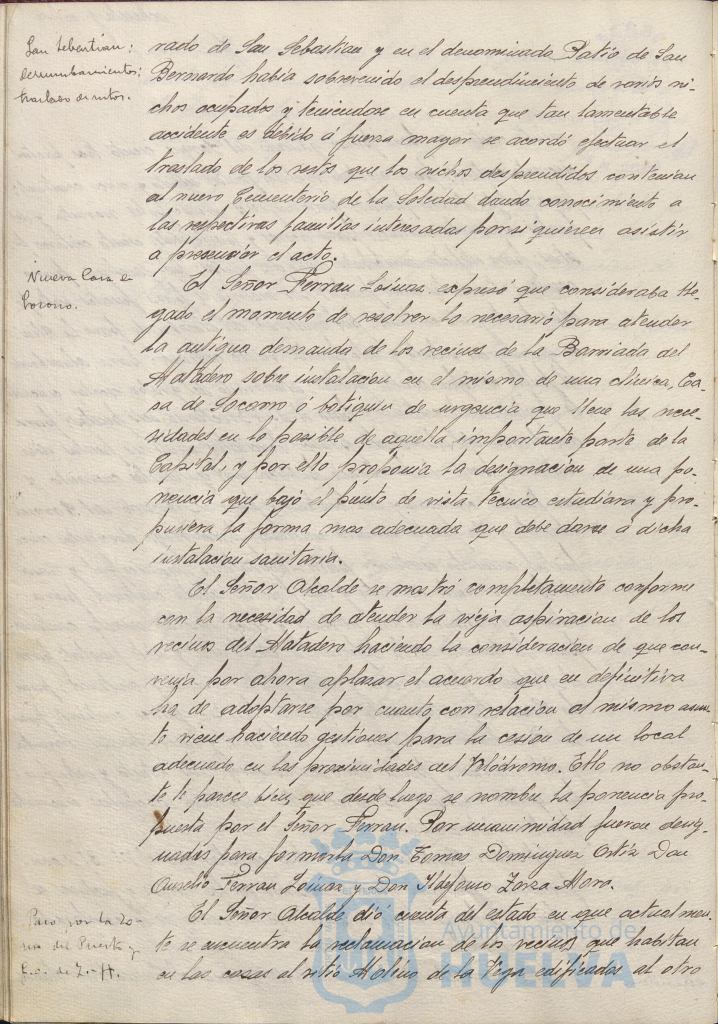 San Sebastián:
derrumbamientos:
traslado de nitos.
rado de San Sebastian y en el denominado Patio de San
Bernardo habia sobrevenido el desprendimiento de varios ni-
chos ocupados y teniendose en cuenta que tan lamentable
accidente es debido á fuerza mayor se acordó efectuar el
traslado de los restos que los nichos desprendidos contenian
al nuevo Cementerio de la Soledad dando conocimiento a
las respectivas familias interesadas por si quieren asistir
a presenciar el acto.
Nueva Casa de
Socorro.
El Señor Ferran Loinaz expresó que consideraba lle-
gado el momento de resolver lo necesario para atender
la antigua demanda de los vecinos de la Barriada del
Matadero sobre instalacion en el mismo de una clinica, Ca-
sa de Socorro ó botiquin de urgencia que llene las nece-
sidades en lo posible de aquella importante parte de la
Capital, y por ello proponia la designacion de una po-
nencia que bajo el punto de vista tecnico estudiara y pro-
pusiera la forma mas adecuada que debe darse á dicha
instalacion sanitaria.
El Señor Alcalde se mostró completamente conforme
con la necesidad de atender la vieja aspiracion de los
vecinos del Matadero haciendo la consideracion de que con-
venia por ahora aplazar el acuerdo que en definitiva
ha de adoptarse por cuanto con relacion al mismo asun-
to viene haciendo gestiones para la cesion de un local
adecuado en las proximidades del Velódromo. Ello no obstan-
te le parece bien que desde luego se nombre la ponencia pro-
puesta por el Señor Ferran. Por unanimidad fueron desig-
nados para formarla Don Tomas Dominguez Ortiz Don
Aurelio Ferran Loinaz y Don Ildefonso Zarza Mora.
Paso por la Zo-
na del Puerto y
f.c. de Z-H.
El Señor Alcalde dió cuenta del estado en que actualmen-
te se encuentra la reclamacion de los vecinos que habitan
en las casas al sitio Molino de la Vega edificadas al otro
Ayuntamiento de
HUELVA